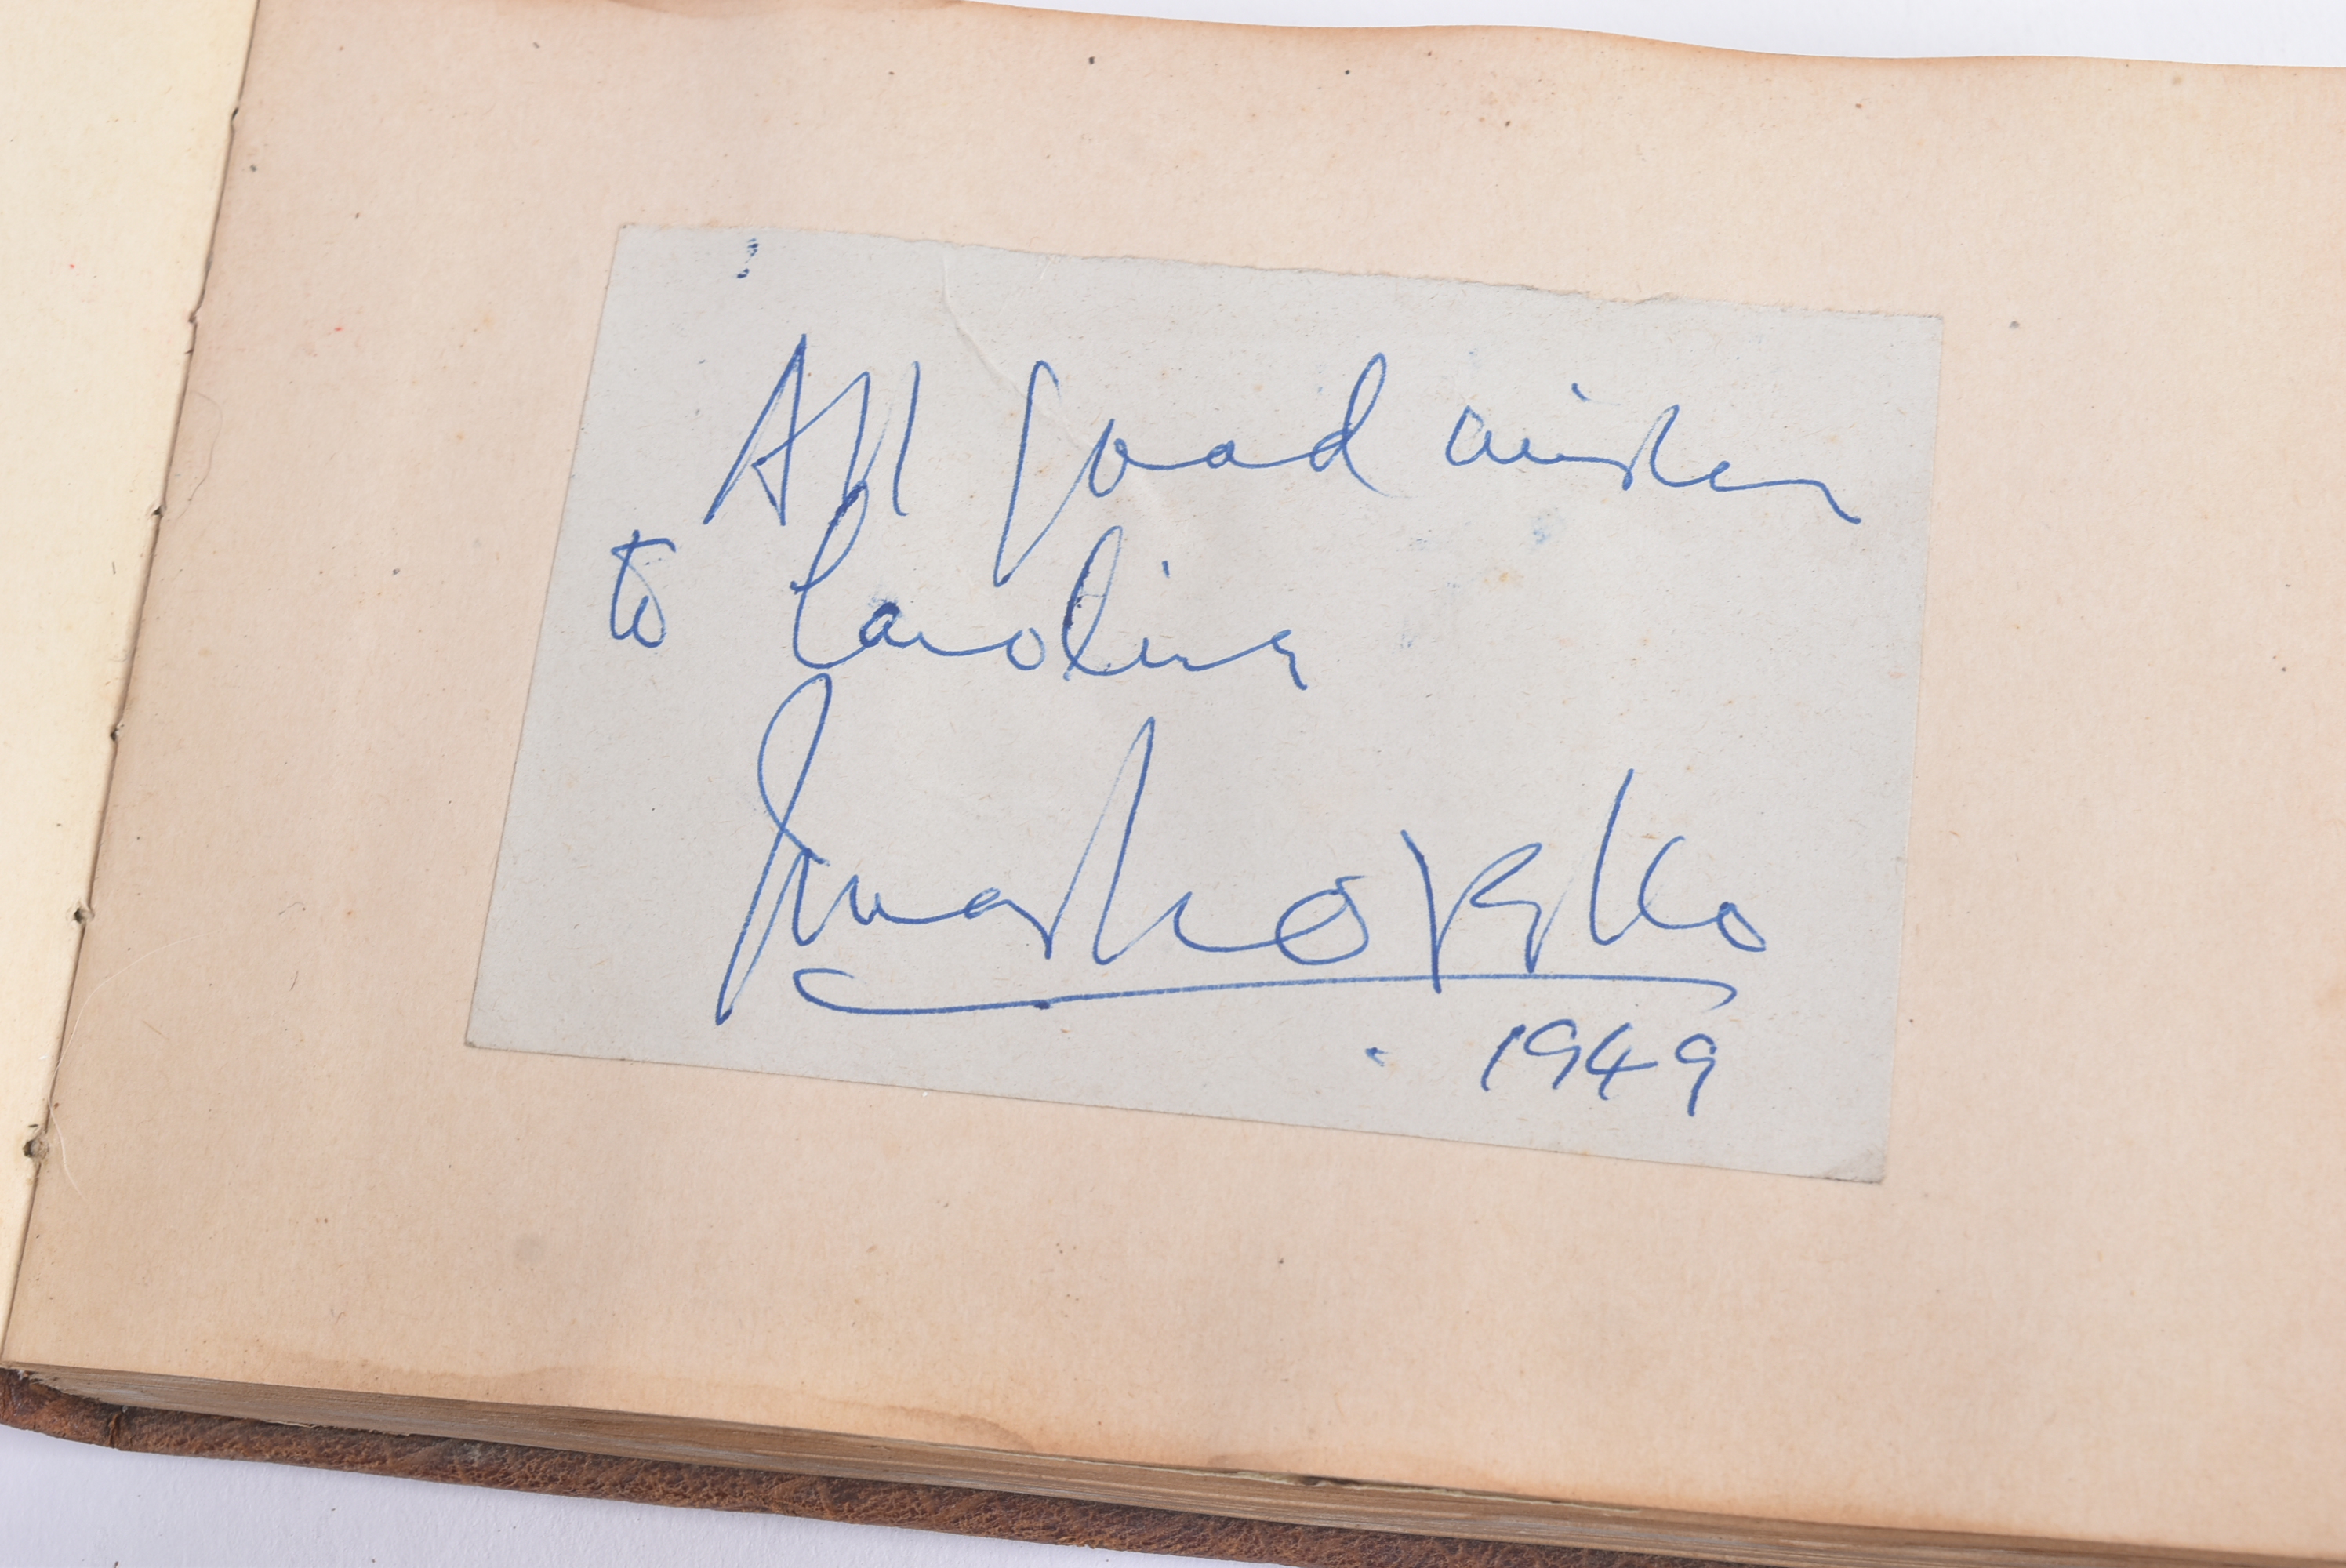 All good wishes
to Caroline
1949